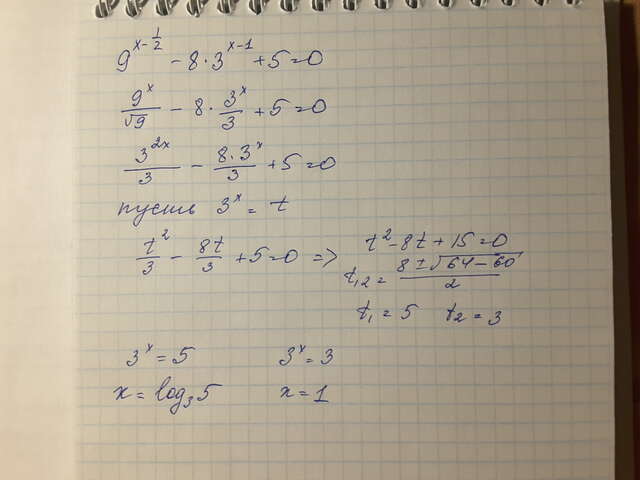 9^{x-\frac{1}{2}} - 8 \cdot 3^{x-1} + 5 = 0
\frac{9^x}{\sqrt{9}} - 8 \cdot \frac{3^x}{3} + 5 = 0
\frac{3^{2x}}{3} - \frac{8 \cdot 3^x}{3} + 5 = 0
пусть 3^x = t
\frac{t^2}{3} - \frac{8t}{3} + 5 = 0 =>
t^2 - 8t + 15 = 0
t_{1,2} = \frac{8 \pm \sqrt{64 - 60}}{2}
t_1 = 5 t_2 = 3
3^x = 5 3^x = 3
x = log_3 5 x = 1